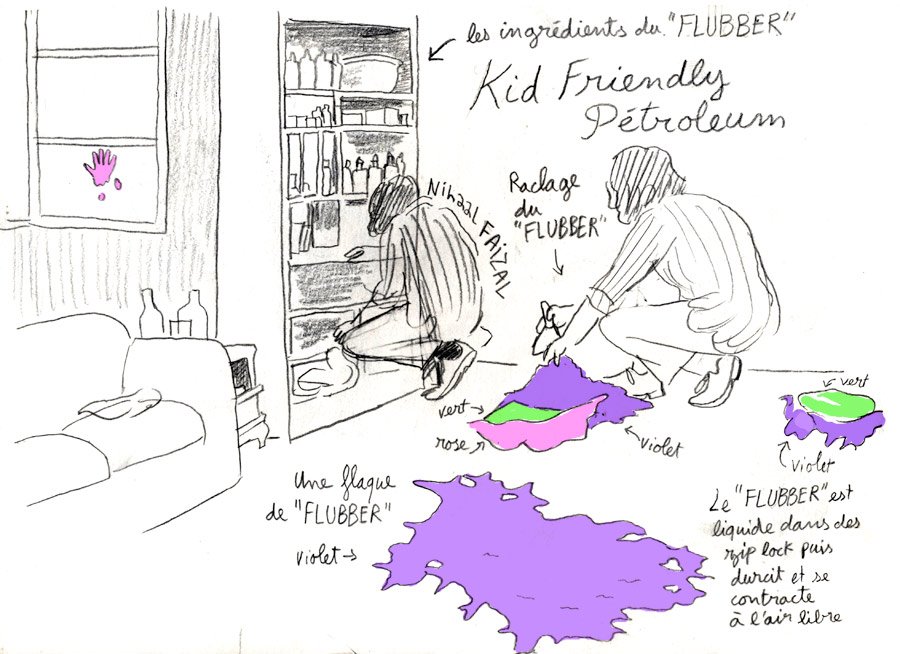 les ingrédients du "FLUBBER"
Kid Friendly
Pétroleum
Nihaal FAIZAL
Raclage
du
"FLUBBER"
vert
vert
rose
violet
violet
Une flaque
de "FLUBBER"
violet
Le "FLUBBER" est
liquide dans des
zip lock puis
durcit et se
contracte
à l'air libre